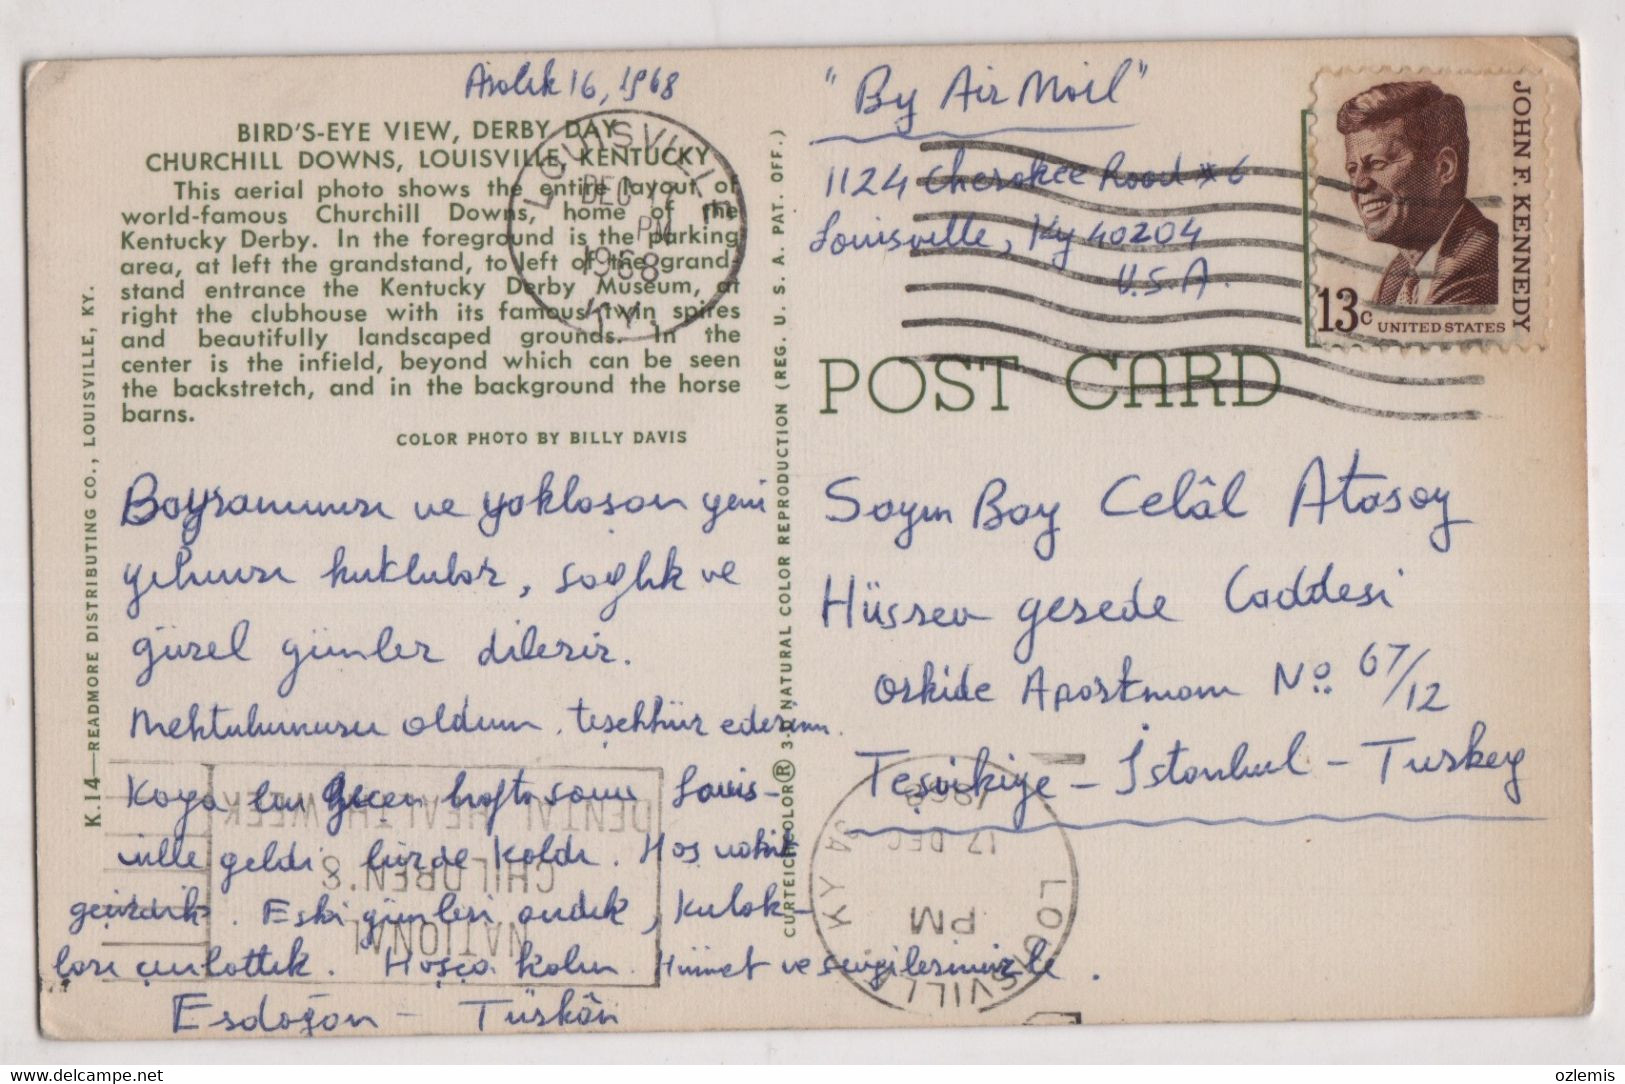 Aralık 16, 1968
BIRD'S-EYE VIEW, DERBY DAY
CHURCHILL DOWNS, LOUISVILLE, KENTUCKY
This aerial photo shows the entire layout of
world-famous Churchill Downs, home of the
Kentucky Derby. In the foreground is the parking
area, at left the grandstand, to left of the grand-
stand entrance the Kentucky Derby Museum, at
right the clubhouse with its famous twin spires
and beautifully landscaped grounds. In the
center is the infield, beyond which can be seen
the backstretch, and in the background the horse
barns.
COLOR PHOTO BY BILLY DAVIS
K.14—READMORE DISTRIBUTING CO., LOUISVILLE, KY.
LOUISVILLE
DEC
PM
1968
KY.
Bayramınızı ve yaklaşan yeni
yılınızı kutlular, sağlık ve
güzel günler dileriz.
Mektubunuzu aldım, teşekkür ederim.
Kaya bu geçen hafta sonu Louis-
ville geldi bizde kaldı. Hoş vakit
geçirdik. Eski günleri andık, kulak-
ları çınlattık. Hoşça kalın. Hürmet ve sevgilerimizle.
Erdoğan – Türkân
CURTEICHCOLOR® 3-D NATURAL COLOR REPRODUCTION (REG. U. S. A. PAT. OFF.)
"By Air Mail"
1124 Cherokee Road #6
Louisville, Ky 40204
U.S.A.
JOHN F. KENNEDY
13c UNITED STATES
POST CARD
Sayın Bay Celâl Atasoy
Hüsrev gerede Caddesi
Orkide Apartmanı No: 67/12
Teşvikiye – İstanbul – Turkey
NATIONAL
CHILDREN'S
DENTAL HEALTH WEEK
LOUISVILLE KY
PM
17 DEC
1968
ozlemis